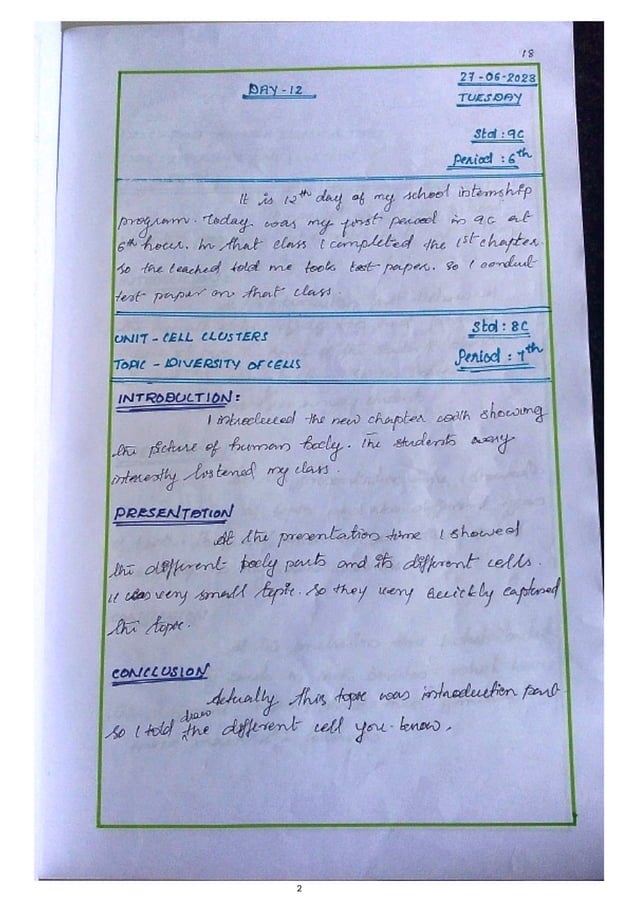 18
DAY-12
27-06-2023
TUESDAY
Std: 9C
Period: 6th
It is 12th day of my school internship
program. Today was my first period in 9C at
6th hour. In that class I completed the 1st chapter.
So the teached told me took test paper. So I conduit
test paper on that class.
UNIT - CELL CLUSTERS
Std: 8C
TOPIC - DIVERSITY OF CELLS
Period: 7th
INTRODUCTION:
I introduced the new chapter with showing
the picture of human body. The students very
interestly listened my class.
PRESENTATION
At the presentation time I showed
the different body parts and its different cells.
It was very small topic. So they very quickly captured
the topic.
CONCLUSION
Actually this topic was introduction part
So I told draw the different cell you know.
2